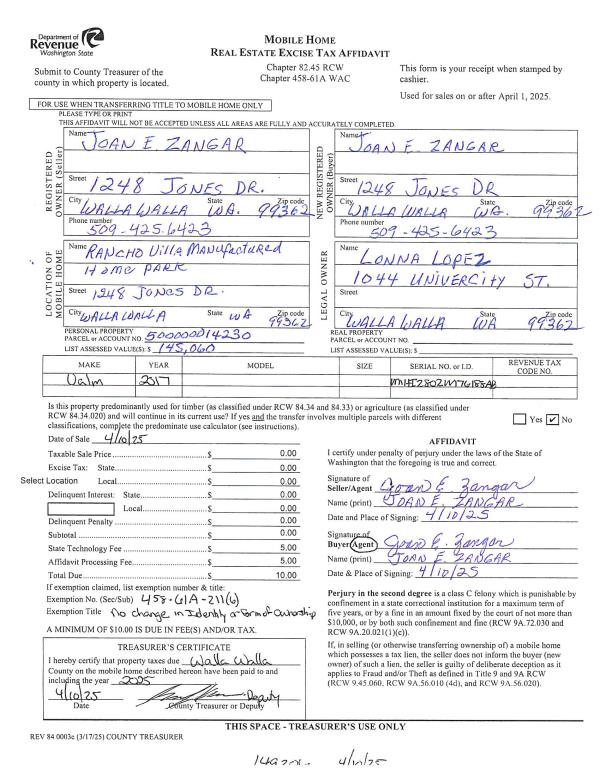 Department of
Revenue
Washington State
MOBILE HOME
REAL ESTATE EXCISE TAX AFFIDAVIT
Submit to County Treasurer of the
county in which property is located.
Chapter 82.45 RCW
Chapter 458-61A WAC
This form is your receipt when stamped by
cashier.
Used for sales on or after April 1, 2025.
FOR USE WHEN TRANSFERRING TITLE TO MOBILE HOME ONLY
PLEASE TYPE OR PRINT
THIS AFFIDAVIT WILL NOT BE ACCEPTED UNLESS ALL AREAS ARE FULLY AND ACCURATELY COMPLETED.
REGISTERED
OWNER (Seller)
Name JOAN E. ZANGAR
Street 1248 JONES DR.
City WALLA WALLA State WA. Zip code 99362
Phone number 509-425-6423
NEW REGISTERED
OWNER (Buyer)
Name JOAN E. ZANGAR
Street 1248 JONES DR
City WALLA WALLA State WA. Zip code 99362
Phone number 509-425-6423
LOCATION OF
MOBILE HOME
Name RANCHO Villa Manufactured
Home PARK
Street 1248 JONES DR.
City WALLA WALLA State WA Zip code 99362
LEGAL OWNER
Name LONNA LOPEZ
1044 UNIVERCITY ST.
Street
City WALLA WALLA State WA Zip code 99362
PERSONAL PROPERTY
PARCEL or ACCOUNT NO. 500000014230
LIST ASSESSED VALUE(S): $ 145,060
REAL PROPERTY
PARCEL or ACCOUNT NO.
LIST ASSESSED VALUE(S): $
MAKE YEAR MODEL SIZE SERIAL NO. or I.D. REVENUE TAX
CODE NO.
Valm 2017
Is this property predominantly used for timber (as classified under RCW 84.34 and 84.33) or agriculture (as classified under
RCW 84.34.020) and will continue in its current use? If yes and the transfer involves multiple parcels with different
classifications, complete the predominate use calculator (see instructions).
Yes ✓ No
Date of Sale 4/10/25
Taxable Sale Price $ 0.00
Excise Tax: State $ 0.00
Select Location Local $ 0.00
Delinquent Interest: State $ 0.00
Local $ 0.00
Delinquent Penalty $ 0.00
Subtotal $ 0.00
State Technology Fee $ 5.00
Affidavit Processing Fee $ 5.00
Total Due $ 10.00
If exemption claimed, list exemption number & title:
Exemption No. (Sec/Sub) 458-61A-211(6)
Exemption Title No change in Identity or Form of Ownorship
A MINIMUM OF $10.00 IS DUE IN FEE(S) AND/OR TAX.
TREASURER'S CERTIFICATE
I hereby certify that property taxes due Walla Walla
County on the mobile home described hereon have been paid to and
including the year 2025
4/10/25 Deputy
Date County Treasurer or Deputy
AFFIDAVIT
I certify under penalty of perjury under the laws of the State of
Washington that the foregoing is true and correct.
Signature of
Seller/Agent Joan E Zangar
Name (print) JOAN E. ZANGAR
Date and Place of Signing: 4/10/25
Signature of
Buyer/Agent Joan E. Zangar
Name (print) JOAN E. ZANGAR
Date & Place of Signing: 4/10/25
Perjury in the second degree is a class C felony which is punishable by
confinement in a state correctional institution for a maximum term of
five years, or by a fine in an amount fixed by the court of not more than
$10,000, or by both such confinement and fine (RCW 9A.72.030 and
RCW 9A.20.021(1)(c)).
If, in selling (or otherwise transferring ownership of) a mobile home
which possesses a tax lien, the seller does not inform the buyer (new
owner) of such a lien, the seller is guilty of deliberate deception as it
applies to Fraud and/or Theft as defined in Title 9 and 9A RCW
(RCW 9.45.060, RCW 9A.56.010 (4d), and RCW 9A.56.020).
THIS SPACE - TREASURER'S USE ONLY
REV 84 0003c (3/17/25) COUNTY TREASURER
4/10/25